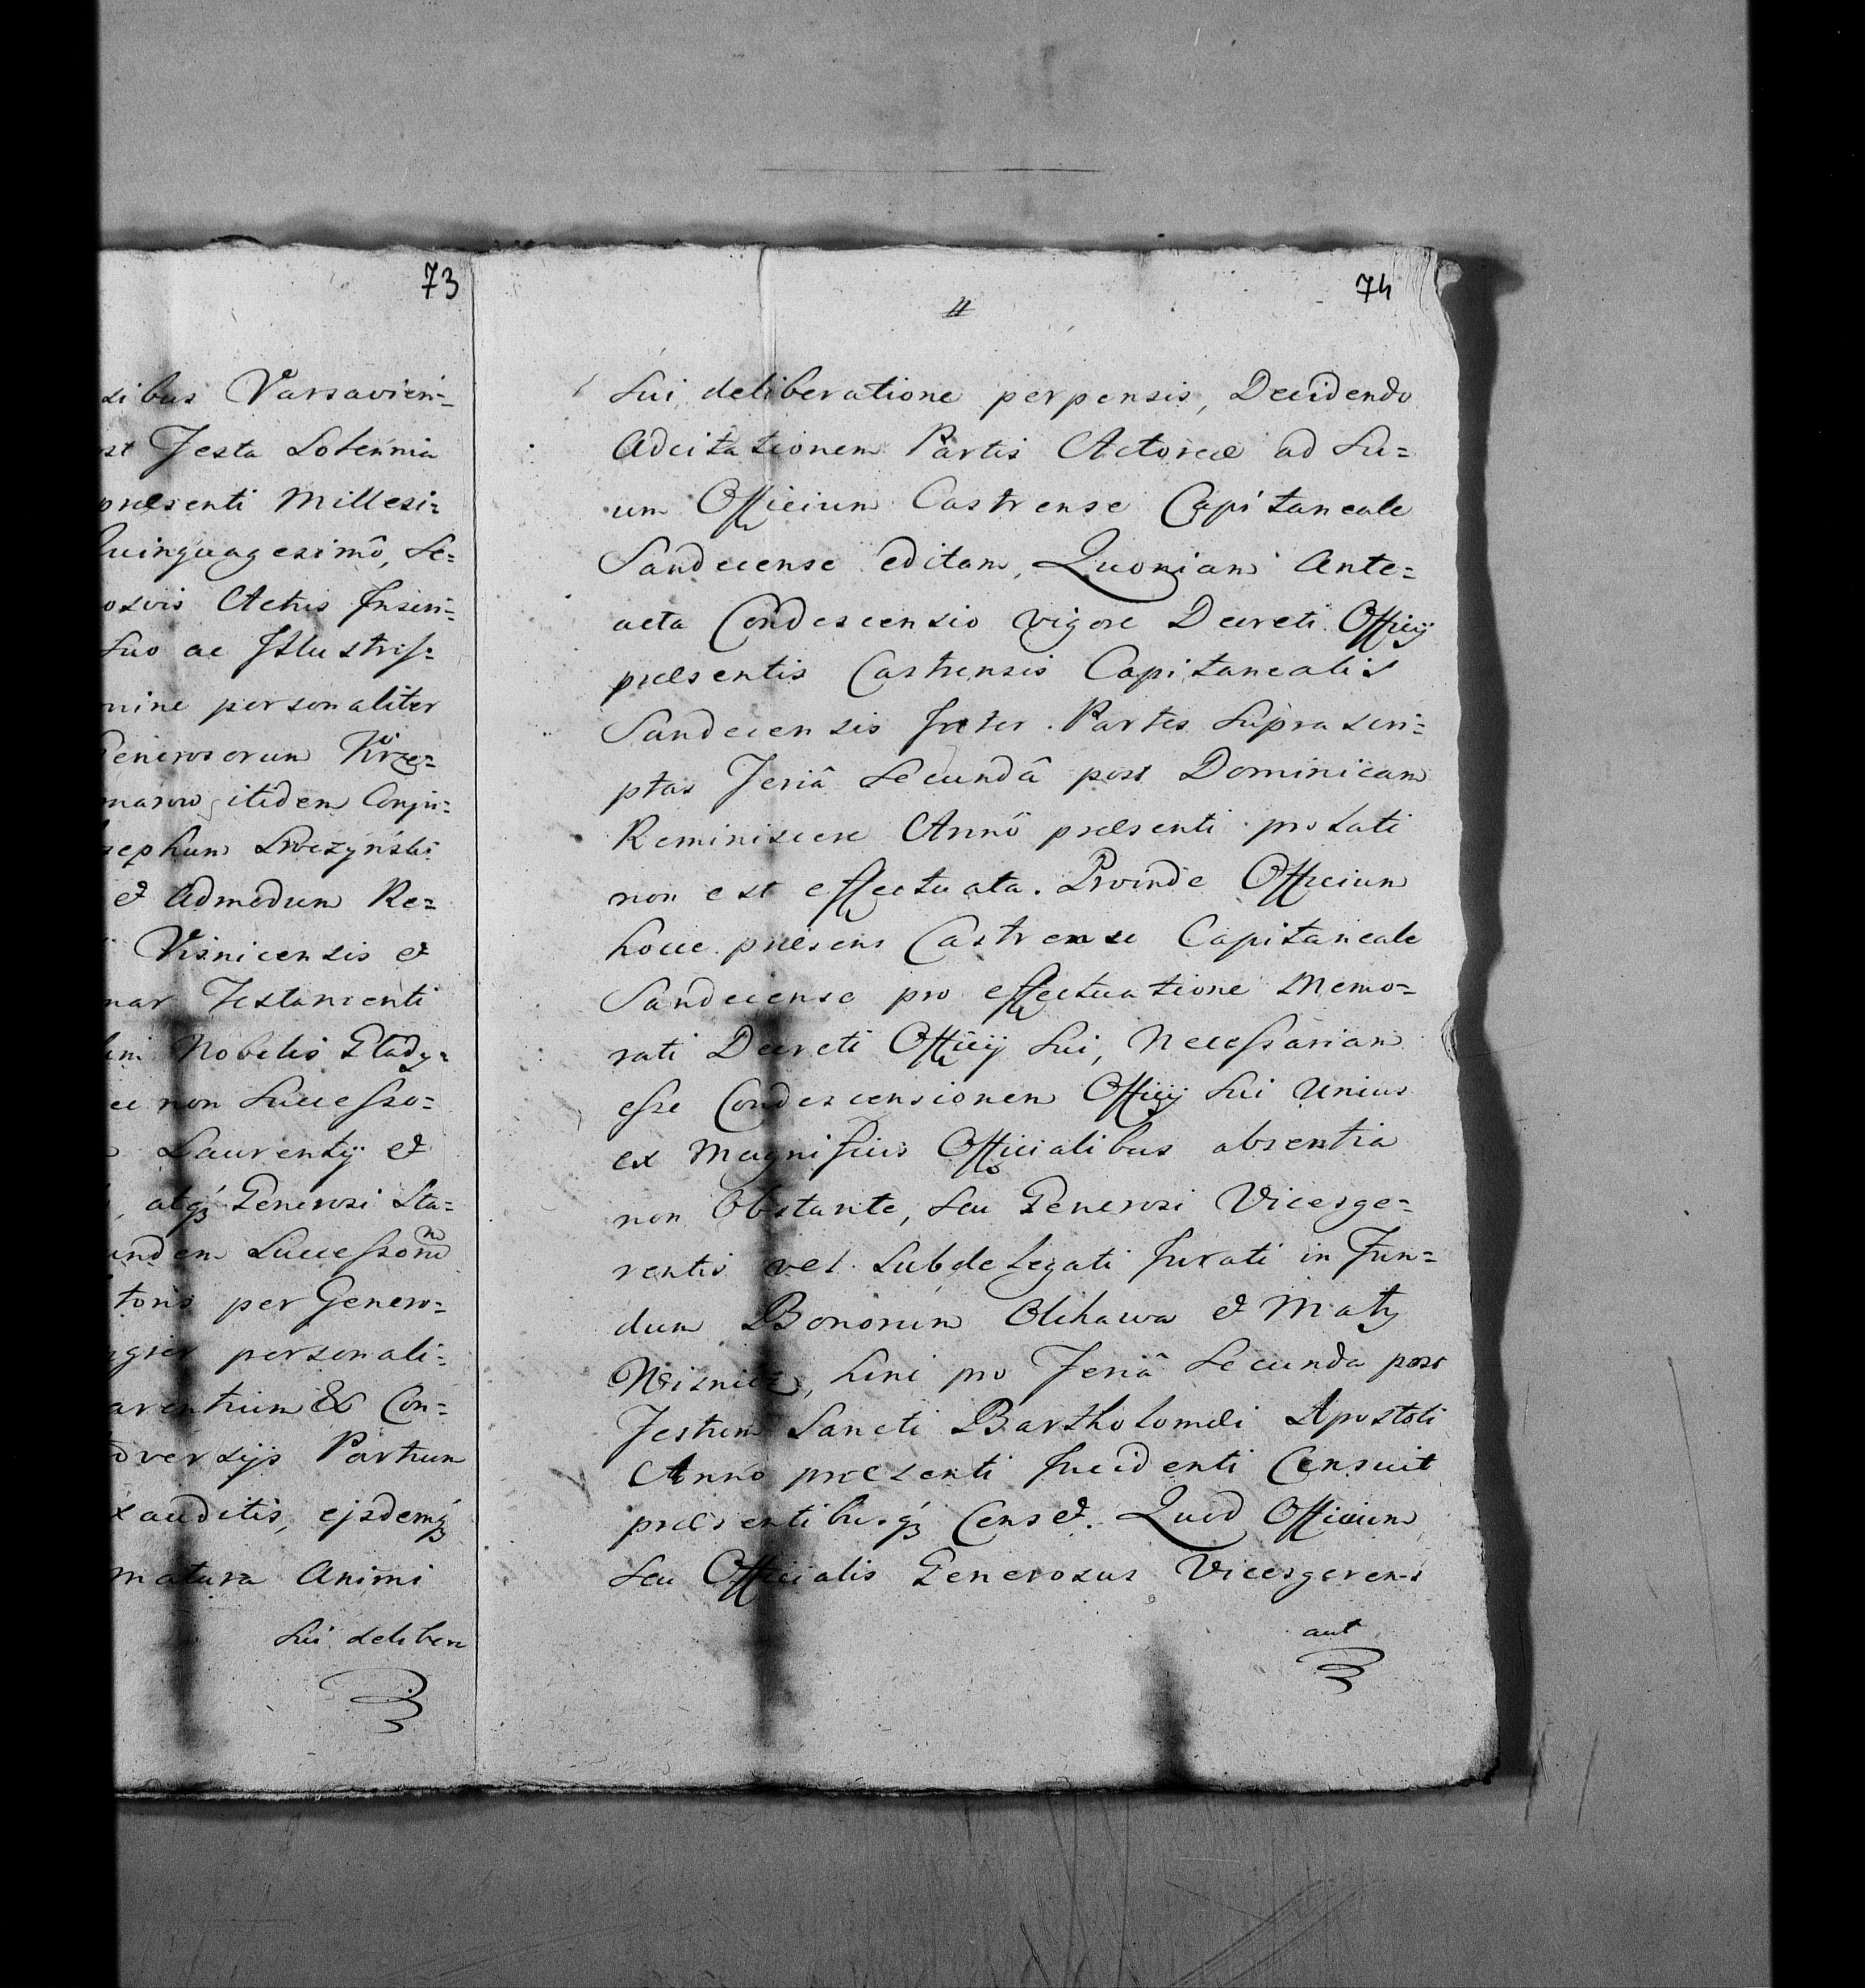 73
sibus Varsavien=
st Festa Solennia
præsenti Millesi=
quinquagesimô, Se=
osvis Actis Inseri=
Suo ac Illustriss=
mine personaliter
Generosorum Krze=
itidem Conju=
sephum
& Admodum Re=
Visnicensis &
nar Testamenti
Nobilis Glady=
ec non Successo=
Laurentij &
atq3 Generosi Sta=
undem Successorum
toris per Genero=
personali=
arentium & Con=
oversijs Partium
xauditis, ejsdemq3
matura Animi
Sui delibera
74
Sui deliberatione perpensis, Decidendo
Adcitationem Partis Actoreæ ad Su=
um Officium Castrense Capitaneale
Sandecense editam, Quoniam Ante=
acta Condescensio vigore Decreti Officij
præsentis Castrensis Capitanealis
Sandecensis Inter Partes Suprascri=
ptas Feriâ Secundâ post Dominicam
Reminiscere Annô præsenti prolati
non est effectuata. Proinde Officium
hocce præsens Castrense Capitaneale
Sandecense pro effectuatione Memo=
rati Decreti Officij Sui, Necessariam
esse Condescensionem Officij Sui Unius
ex Magnificis Officialibus absentia
non Obstante, Seu Generosi Vicesge=
rentis vel Subdelegati Jurati in Fun=
dum Bonorum Olchawa & Mały
Wisnicz, hini pro Feriâ Secunda post
Festum Sancti Bartholomæi Apostoli
Anno præsenti Incidenti Censuit
præsentibusq3 Censet. Quod Officium
Seu Officialis Generosus Vicesgerens
aut